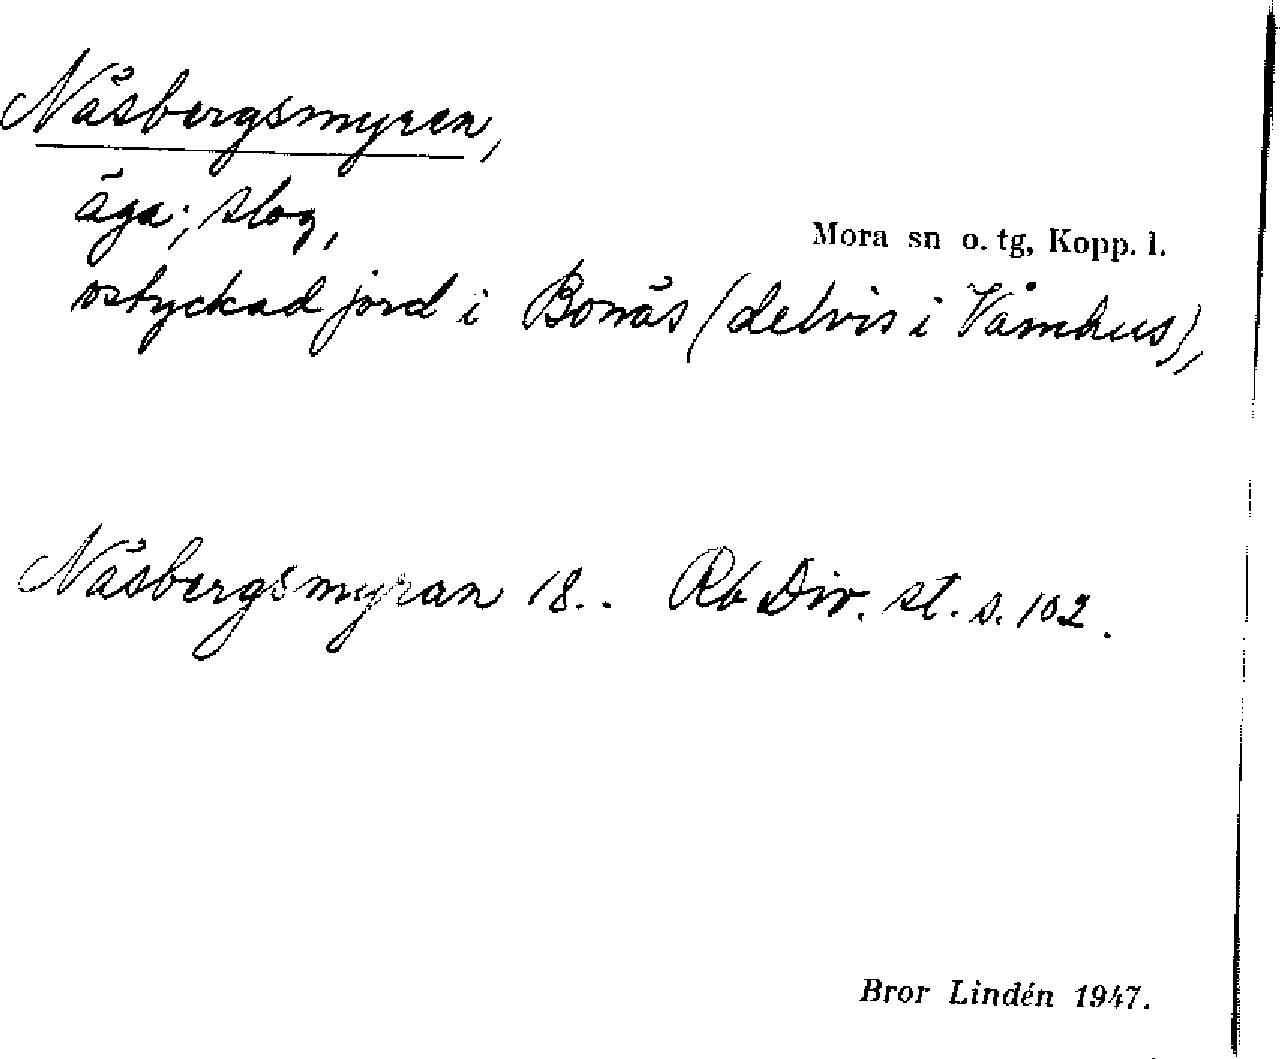 Näsbergsmyren,
äga; slog,
ostyckad jord i Bonäs (delvis i Våmhus),
Mora sn o. tg, Kopp. l.
Näsbergsmyran 18.. Rb Div. st. s. 102.
Bror Lindén 1947.